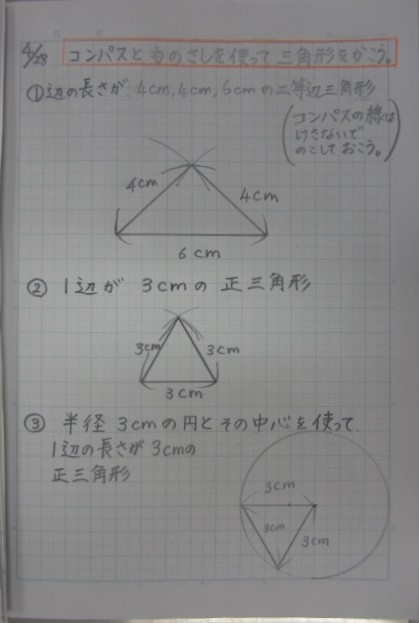 4/28 コンパスとものさしを使って三角形をかこう。
①辺の長さが、4cm,4cm,6cmの二等辺三角形
(コンパスの線は
けさないで
のこしておこう。)
4cm
4cm
6cm
② 1辺が 3cmの 正三角形
3cm
3cm
3cm
③ 半径 3cmの円とその中心を使って、
1辺の長さが3cmの
正三角形
3cm
3cm
3cm